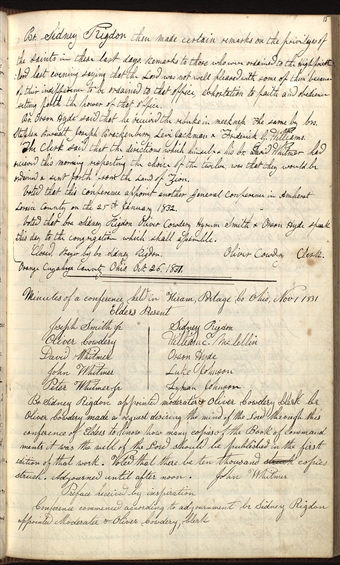 15
Br. Sidney Rigdon then made certain remarks on the privileges of
the saints in these last days remarks to those who were ordained to the high priesthood
last evening saying that the Lord was not well pleased with some of them because
of their indifference to be ordained to that office, exhortation to faith and obedience
setting forth the power of that office.
Br. Orson Hyde said that he received the remarks in meekness. The same by brs.
Joseph Brackenbury, Levi Jackman & Frederick G. Williams.
The Clerk said that the directions which himself & his br. David Whitmer had
received this morning respecting the choice of the twelve was that they would be
ordained & sent forth from the Land of Zion.
Voted that this conference appoint another general conference in Amherst
Lorain County on the 25th January 1832.
Voted that brs Sidney Rigdon Oliver Cowdery Hyrum Smith & Orson Hyde speak
this day to the congregation which shall assemble.
Closed prayer by br. Sidney Rigdon. Oliver Cowdery Clerk.
Orange Cuyahoga County, Ohio Oct. 26, 1831.
Minutes of a conference held in Hiram, Portage Co Ohio, Nov 1 1831
Elders Present
Joseph Smith jr Sidney Rigdon
Oliver Cowdery William E. McLellin
David Whitmer Orson Hyde
John Whitmer Luke Johnson
Peter Whitmer jr Lyman Johnson
Br Sidney Rigdon appointed moderator & Oliver Cowdery Clerk br
Oliver Cowdery made a request desiring the mind of the Lord through this
conference of Elders to know how many copies of the Book of Command
ments it was the will of the Lord should be published in the first
edition of that work. Voted that there be ten thousand copies
struck. Adjourned until after noon. John Whitmer
Preface received by inspiration
Conference commenced according to adjournment br Sidney Rigdon
appointed Moderator & Oliver Cowdery, Clerk